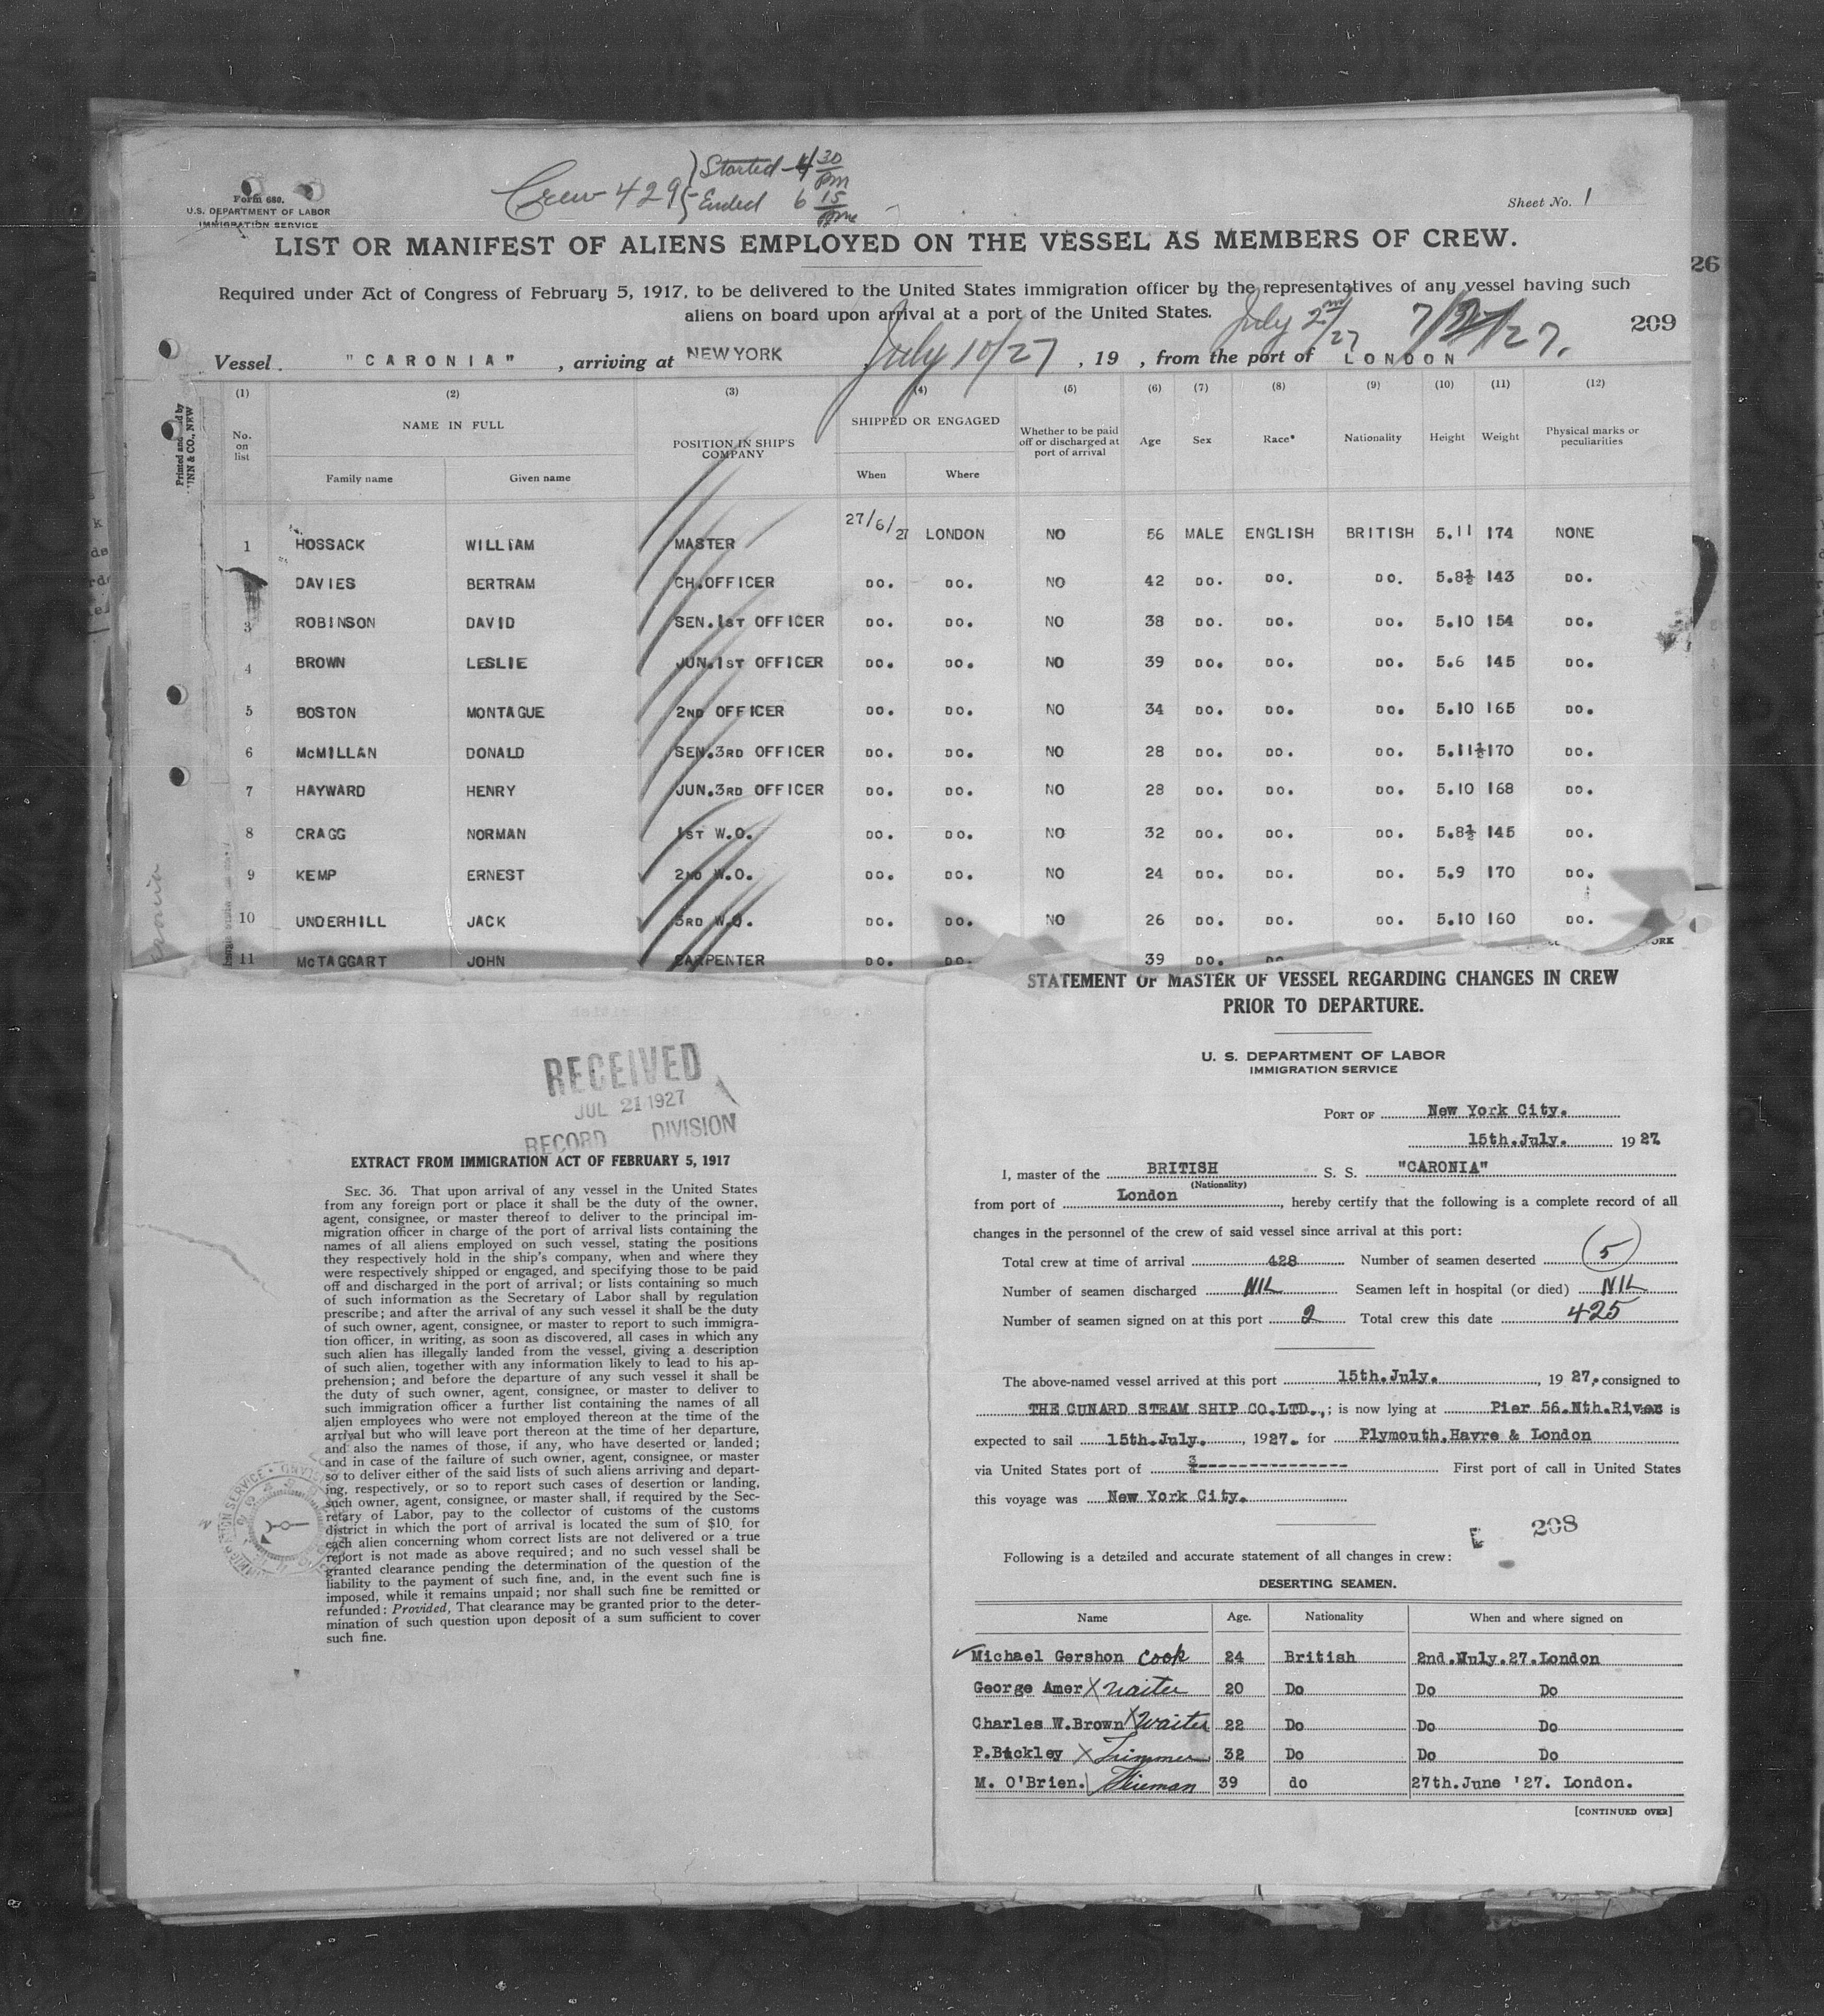 Crew 429 Started 4 30 pm
Ended 6 15 pm
Form 680.
U.S. DEPARTMENT OF LABOR
IMMIGRATION SERVICE
Sheet No. 1
LIST OR MANIFEST OF ALIENS EMPLOYED ON THE VESSEL AS MEMBERS OF CREW.
26
Required under Act of Congress of February 5, 1917, to be delivered to the United States immigration officer by the representatives of any vessel having such
aliens on board upon arrival at a port of the United States.
July 2nd/27
209
Vessel "CARONIA", arriving at NEW YORK July 10/27, 19 , from the port of LONDON
Printed and
(1) (2) (3) (4) (5) (6) (7) (8) (9) (10) (11) (12)
No. on list NAME IN FULL POSITION IN SHIP'S COMPANY SHIPPED OR ENGAGED Whether to be paid off or discharged at port of arrival Age Sex Race* Nationality Height Weight Physical marks or peculiarities
Family name Given name When Where
1 HOSSACK WILLIAM MASTER 27/6/27 LONDON NO 56 MALE ENGLISH BRITISH 5.11 174 NONE
DAVIES BERTRAM CH.OFFICER DO. DO. NO 42 DO. DO. DO. 5.8½ 143 DO.
3 ROBINSON DAVID SEN.1ST OFFICER DO. DO. NO 38 DO. DO. DO. 5.10 154 DO.
4 BROWN LESLIE JUN.1ST OFFICER DO. DO. NO 39 DO. DO. DO. 5.6 145 DO.
5 BOSTON MONTAGUE 2ND OFFICER DO. DO. NO 34 DO. DO. DO. 5.10 165 DO.
6 McMILLAN DONALD SEN.3RD OFFICER DO. DO. NO 28 DO. DO. DO. 5.11½ 170 DO.
7 HAYWARD HENRY JUN.3RD OFFICER DO. DO. NO 28 DO. DO. DO. 5.10 168 DO.
8 CRAGG NORMAN 1ST W.O. DO. DO. NO 32 DO. DO. DO. 5.8½ 145 DO.
9 KEMP ERNEST 2ND W.O. DO. DO. NO 24 DO. DO. DO. 5.9 170 DO.
10 UNDERHILL JACK 3RD W.O. DO. DO. NO 26 DO. DO. DO. 5.10 160 DO.
11 McTAGGART JOHN CARPENTER DO. DO. 39 DO. DO
RECEIVED
JUL 21 1927
RECORD DIVISION
EXTRACT FROM IMMIGRATION ACT OF FEBRUARY 5, 1917
SEC. 36. That upon arrival of any vessel in the United States
from any foreign port or place it shall be the duty of the owner,
agent, consignee, or master thereof to deliver to the principal im-
migration officer in charge of the port of arrival lists containing the
names of all aliens employed on such vessel, stating the positions
they respectively hold in the ship's company, when and where they
were respectively shipped or engaged, and specifying those to be paid
off and discharged in the port of arrival; or lists containing so much
of such information as the Secretary of Labor shall by regulation
prescribe; and after the arrival of any such vessel it shall be the duty
of such owner, agent, consignee, or master to report to such immigra-
tion officer, in writing, as soon as discovered, all cases in which any
such alien has illegally landed from the vessel, giving a description
of such alien, together with any information likely to lead to his ap-
prehension; and before the departure of any such vessel it shall be
the duty of such owner, agent, consignee, or master to deliver to
such immigration officer a further list containing the names of all
alien employees who were not employed thereon at the time of the
arrival but who will leave port thereon at the time of her departure,
and also the names of those, if any, who have deserted or landed;
and in case of the failure of such owner, agent, consignee, or master
so to deliver either of the said lists of such aliens arriving and depart-
ing, respectively, or so to report such cases of desertion or landing,
such owner, agent, consignee, or master shall, if required by the Sec-
retary of Labor, pay to the collector of customs of the customs
district in which the port of arrival is located the sum of $10 for
each alien concerning whom correct lists are not delivered or a true
report is not made as above required; and no such vessel shall be
granted clearance pending the determination of the question of the
liability to the payment of such fine, and, in the event such fine is
imposed, while it remains unpaid; nor shall such fine be remitted or
refunded: Provided, That clearance may be granted prior to the deter-
mination of such question upon deposit of a sum sufficient to cover
such fine.
STATEMENT OF MASTER OF VESSEL REGARDING CHANGES IN CREW
PRIOR TO DEPARTURE.
U. S. DEPARTMENT OF LABOR
IMMIGRATION SERVICE
PORT OF New York City.
15th.July. 1927
I, master of the BRITISH S. S. "CARONIA"
(Nationality)
from port of London, hereby certify that the following is a complete record of all
changes in the personnel of the crew of said vessel since arrival at this port:
Total crew at time of arrival 428 Number of seamen deserted 5
Number of seamen discharged NIL Seamen left in hospital (or died) NIL
Number of seamen signed on at this port 2 Total crew this date 425
The above-named vessel arrived at this port 15th.July., 1927. consigned to
THE CUNARD STEAM SHIP CO.LTD.,; is now lying at Pier 56.Nth.River is
expected to sail 15th.July., 1927. for Plymouth.Havre & London
via United States port of ---------------- First port of call in United States
this voyage was New York City.
208
Following is a detailed and accurate statement of all changes in crew:
DESERTING SEAMEN.
Name Age. Nationality When and where signed on
Michael Gershon Cook 24 British 2nd.July.27.London
George Amer X Waiter 20 Do Do Do
Charles W.Brown X Waiter 22 Do Do Do
P.Bickley X Trimmer 32 Do Do Do
M. O'Brien. Fireman 39 do 27th.June '27. London.
[CONTINUED OVER]